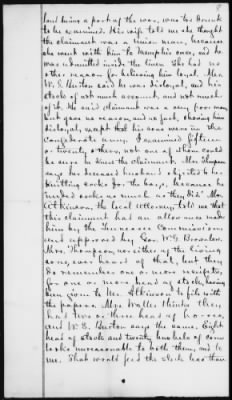 land being a part of the war, was too
to be examined. His wife told me she thought
the claimant was a Union man, because
she went with him to Memphis once, and he
was admitted inside the lines. She had no
other reason for believing him loyal. Mrs.
W. S. Burton said he was disloyal, and his
stock of ark much account, and not much
of it. He said claimant was a very poor man,
but gave no reason, and no fact, showing him
disloyal, except that his sons were in the
Confederate army. I examined fifteen
or twenty, others, not one of whom could
be sure he knew the claimant. Mrs. Thompson
says her deceased husband objected to her
knitting socks for the boys, because he
needed socks as much as they did. Mr.
Atkinson, the local attorney told me that
this claimant had an allowance made
him by the Tennessee Commissions
and approved by Gov. W. G. Brownlow.
Mrs. Thompson, nor either of the living
sons, ever heard of that, but they
do remember one or more receipts,
for one or more head of stock, having
been given to Mr. Atkinson to file with
the papers. Mrs. Waller thinks they
had two or three head of horses,
and W. S. Burton says the same. Eight
head of stock and twenty bushels of corn
looks unreasonable to both them, and to
me. That would feed the stock less than